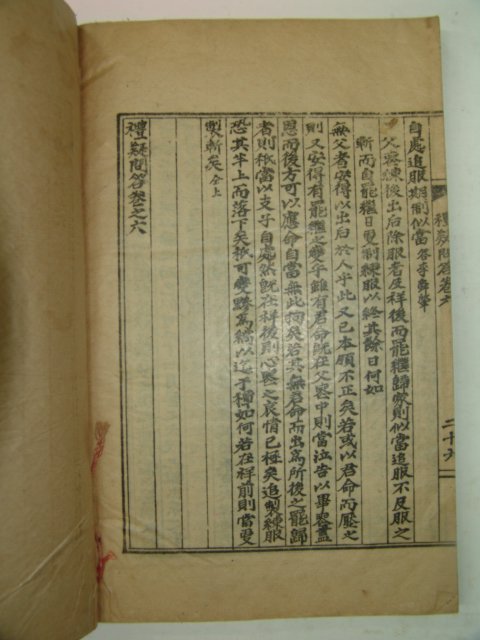 自處追服期則似當答李舜肇
父喪練後出后除服者及祥後而罷繼歸家則似當追服不及服之
斬而自罷繼日更制練服以終其餘日何如
無父者安得以出后於人乎此又已本領不正矣若或以君命而壓之
則又安得有罷繼之變乎雖有君命旣在父喪中則當泣告以畢喪蓋
恩而後方可以應命自當無此拘矣若其無君命而出爲所後之罷歸
者則秖當以支子自處然旣在祥後則心喪之哀情已極矣追製練服
恐其半上而落下矣秖可變黲爲縞以迄于禫如何若在祥前則當更
製斬矣仝上
禮疑問答卷之六
禮疑問答卷六
二十九